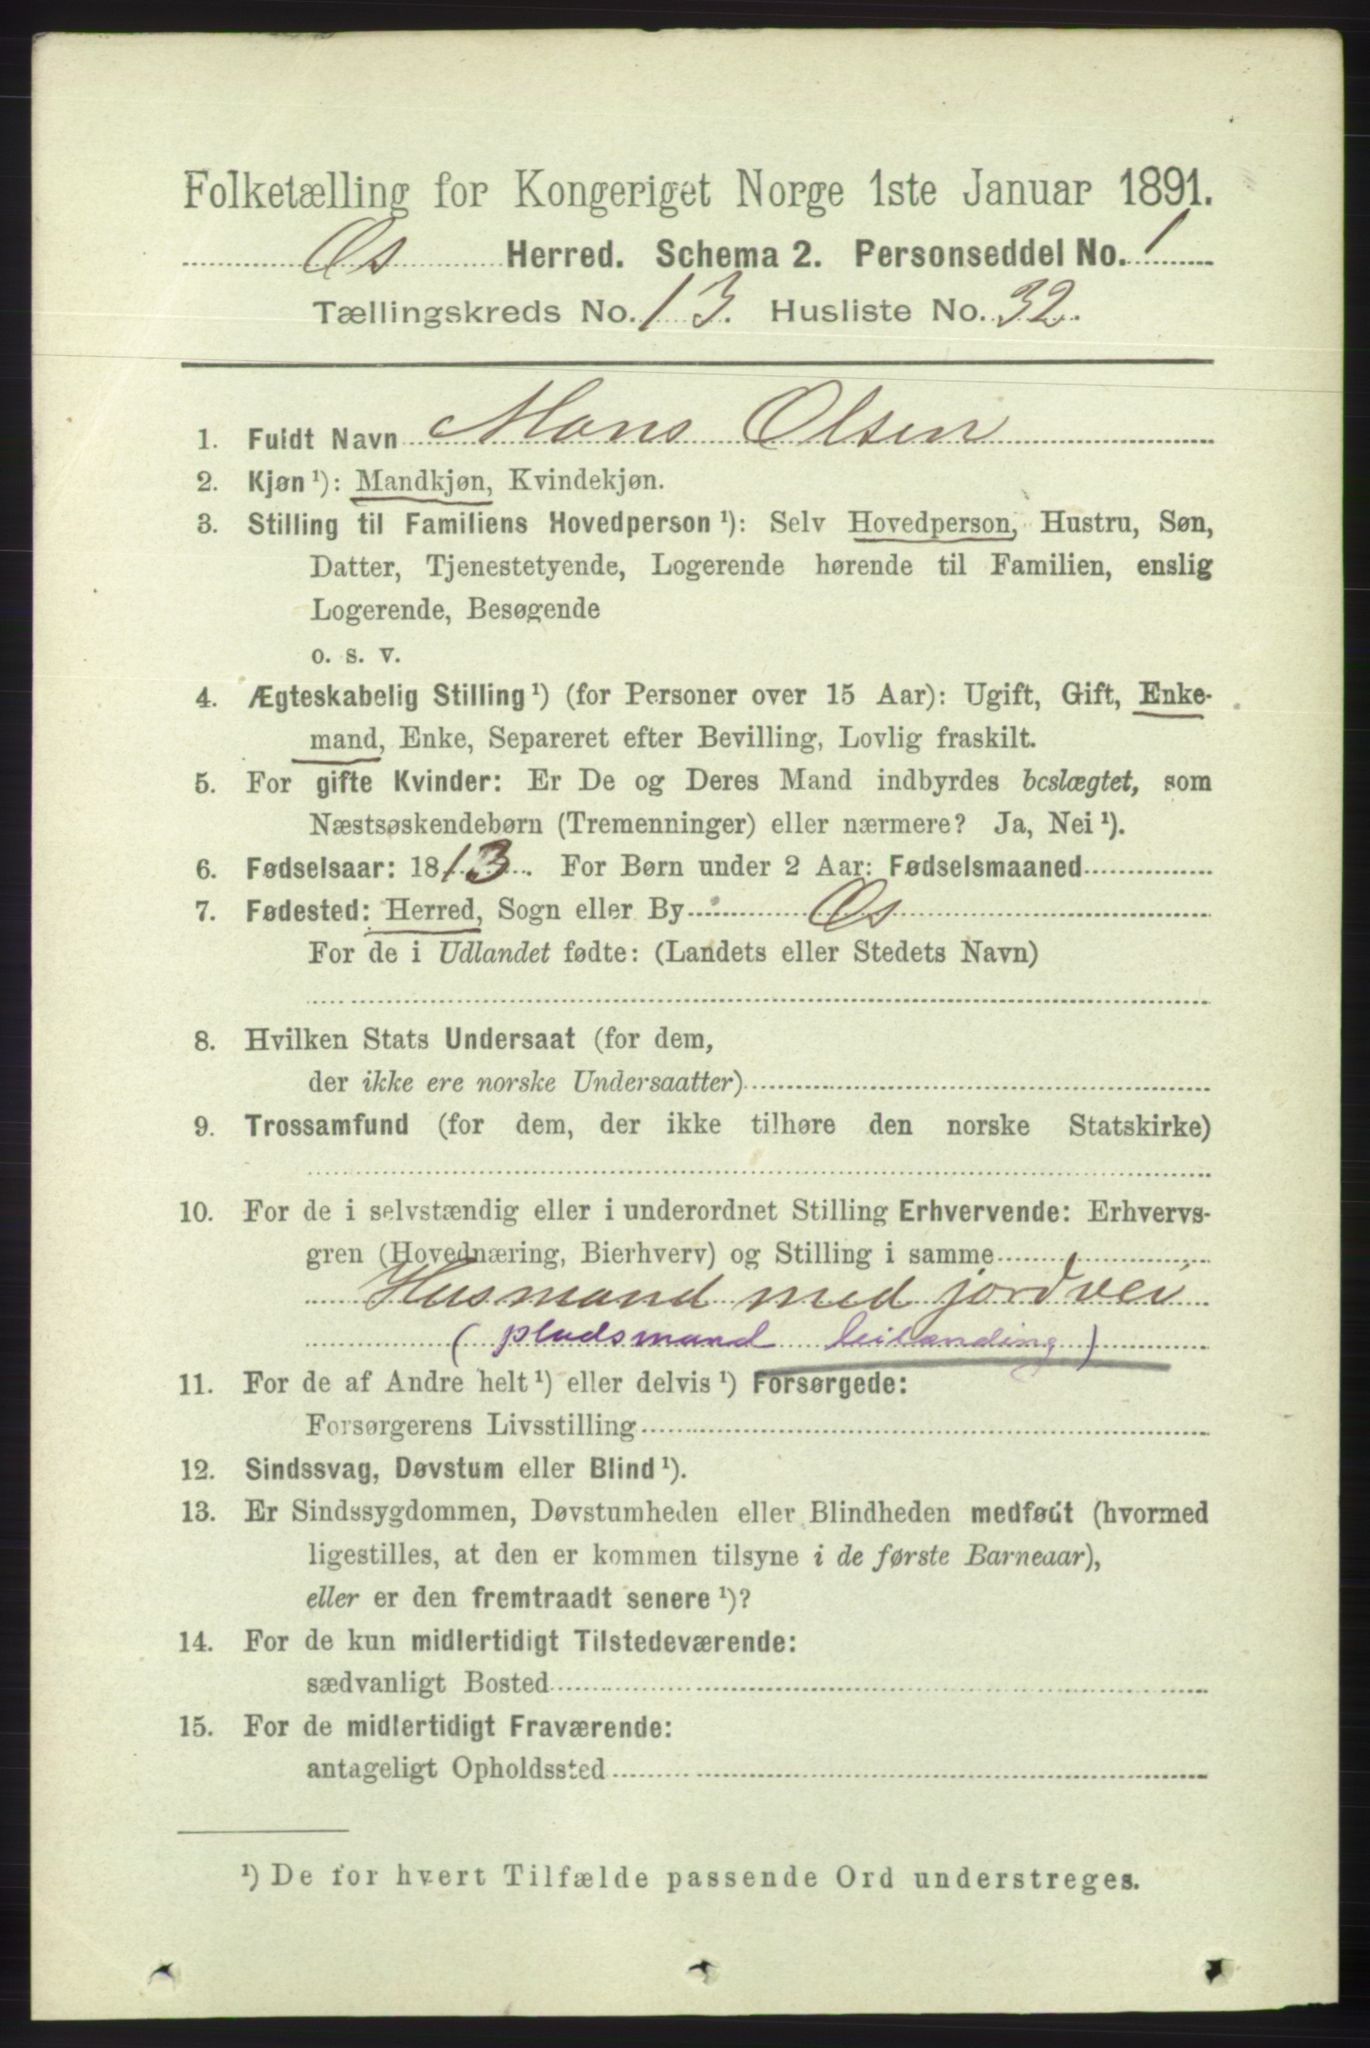 Folketælling for Kongeriget Norge 1ste Januar 1891.
Os Herred. Schema 2. Personseddel No. 1
Tællingskreds No. 13. Husliste No. 32.
1. Fuldt Navn Mons Olsen
2. Kjøn ¹): Mandkjøn, Kvindekjøn.
3. Stilling til Familiens Hovedperson ¹): Selv Hovedperson, Hustru, Søn,
Datter, Tjenestetyende, Logerende hørende til Familien, enslig
Logerende, Besøgende
o. s. v.
4. Ægteskabelig Stilling ¹) (for Personer over 15 Aar): Ugift, Gift, Enke-
mand, Enke, Separeret efter Bevilling, Lovlig fraskilt.
5. For gifte Kvinder: Er De og Deres Mand indbyrdes beslægtet, som
Næstsøskendebørn (Tremenninger) eller nærmere? Ja, Nei ¹).
6. Fødselsaar: 1813. For Børn under 2 Aar: Fødselsmaaned
7. Fødested: Herred, Sogn eller By Os
For de i Udlandet fødte: (Landets eller Stedets Navn)
8. Hvilken Stats Undersaat (for dem,
der ikke ere norske Undersaatter)
9. Trossamfund (for dem, der ikke tilhøre den norske Statskirke)
10. For de i selvstændig eller i underordnet Stilling Erhvervende: Erhvervs-
gren (Hovednæring, Bierhverv) og Stilling i samme
Husmand med jordvei
(pladsmand leilænding)
11. For de af Andre helt ¹) eller delvis ¹) Forsørgede:
Forsørgerens Livsstilling
12. Sindssvag, Døvstum eller Blind ¹).
13. Er Sindssygdommen, Døvstumheden eller Blindheden medfødt (hvormed
ligestilles, at den er kommen tilsyne i de første Barneaar),
eller er den fremtraadt senere ¹)?
14. For de kun midlertidigt Tilstedeværende:
sædvanligt Bosted
15. For de midlertidigt Fraværende:
antageligt Opholdssted
¹) De for hvert Tilfælde passende Ord understreges.